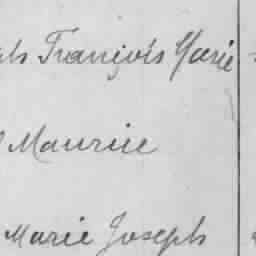 François Marie
Maurice
Marie Joseph